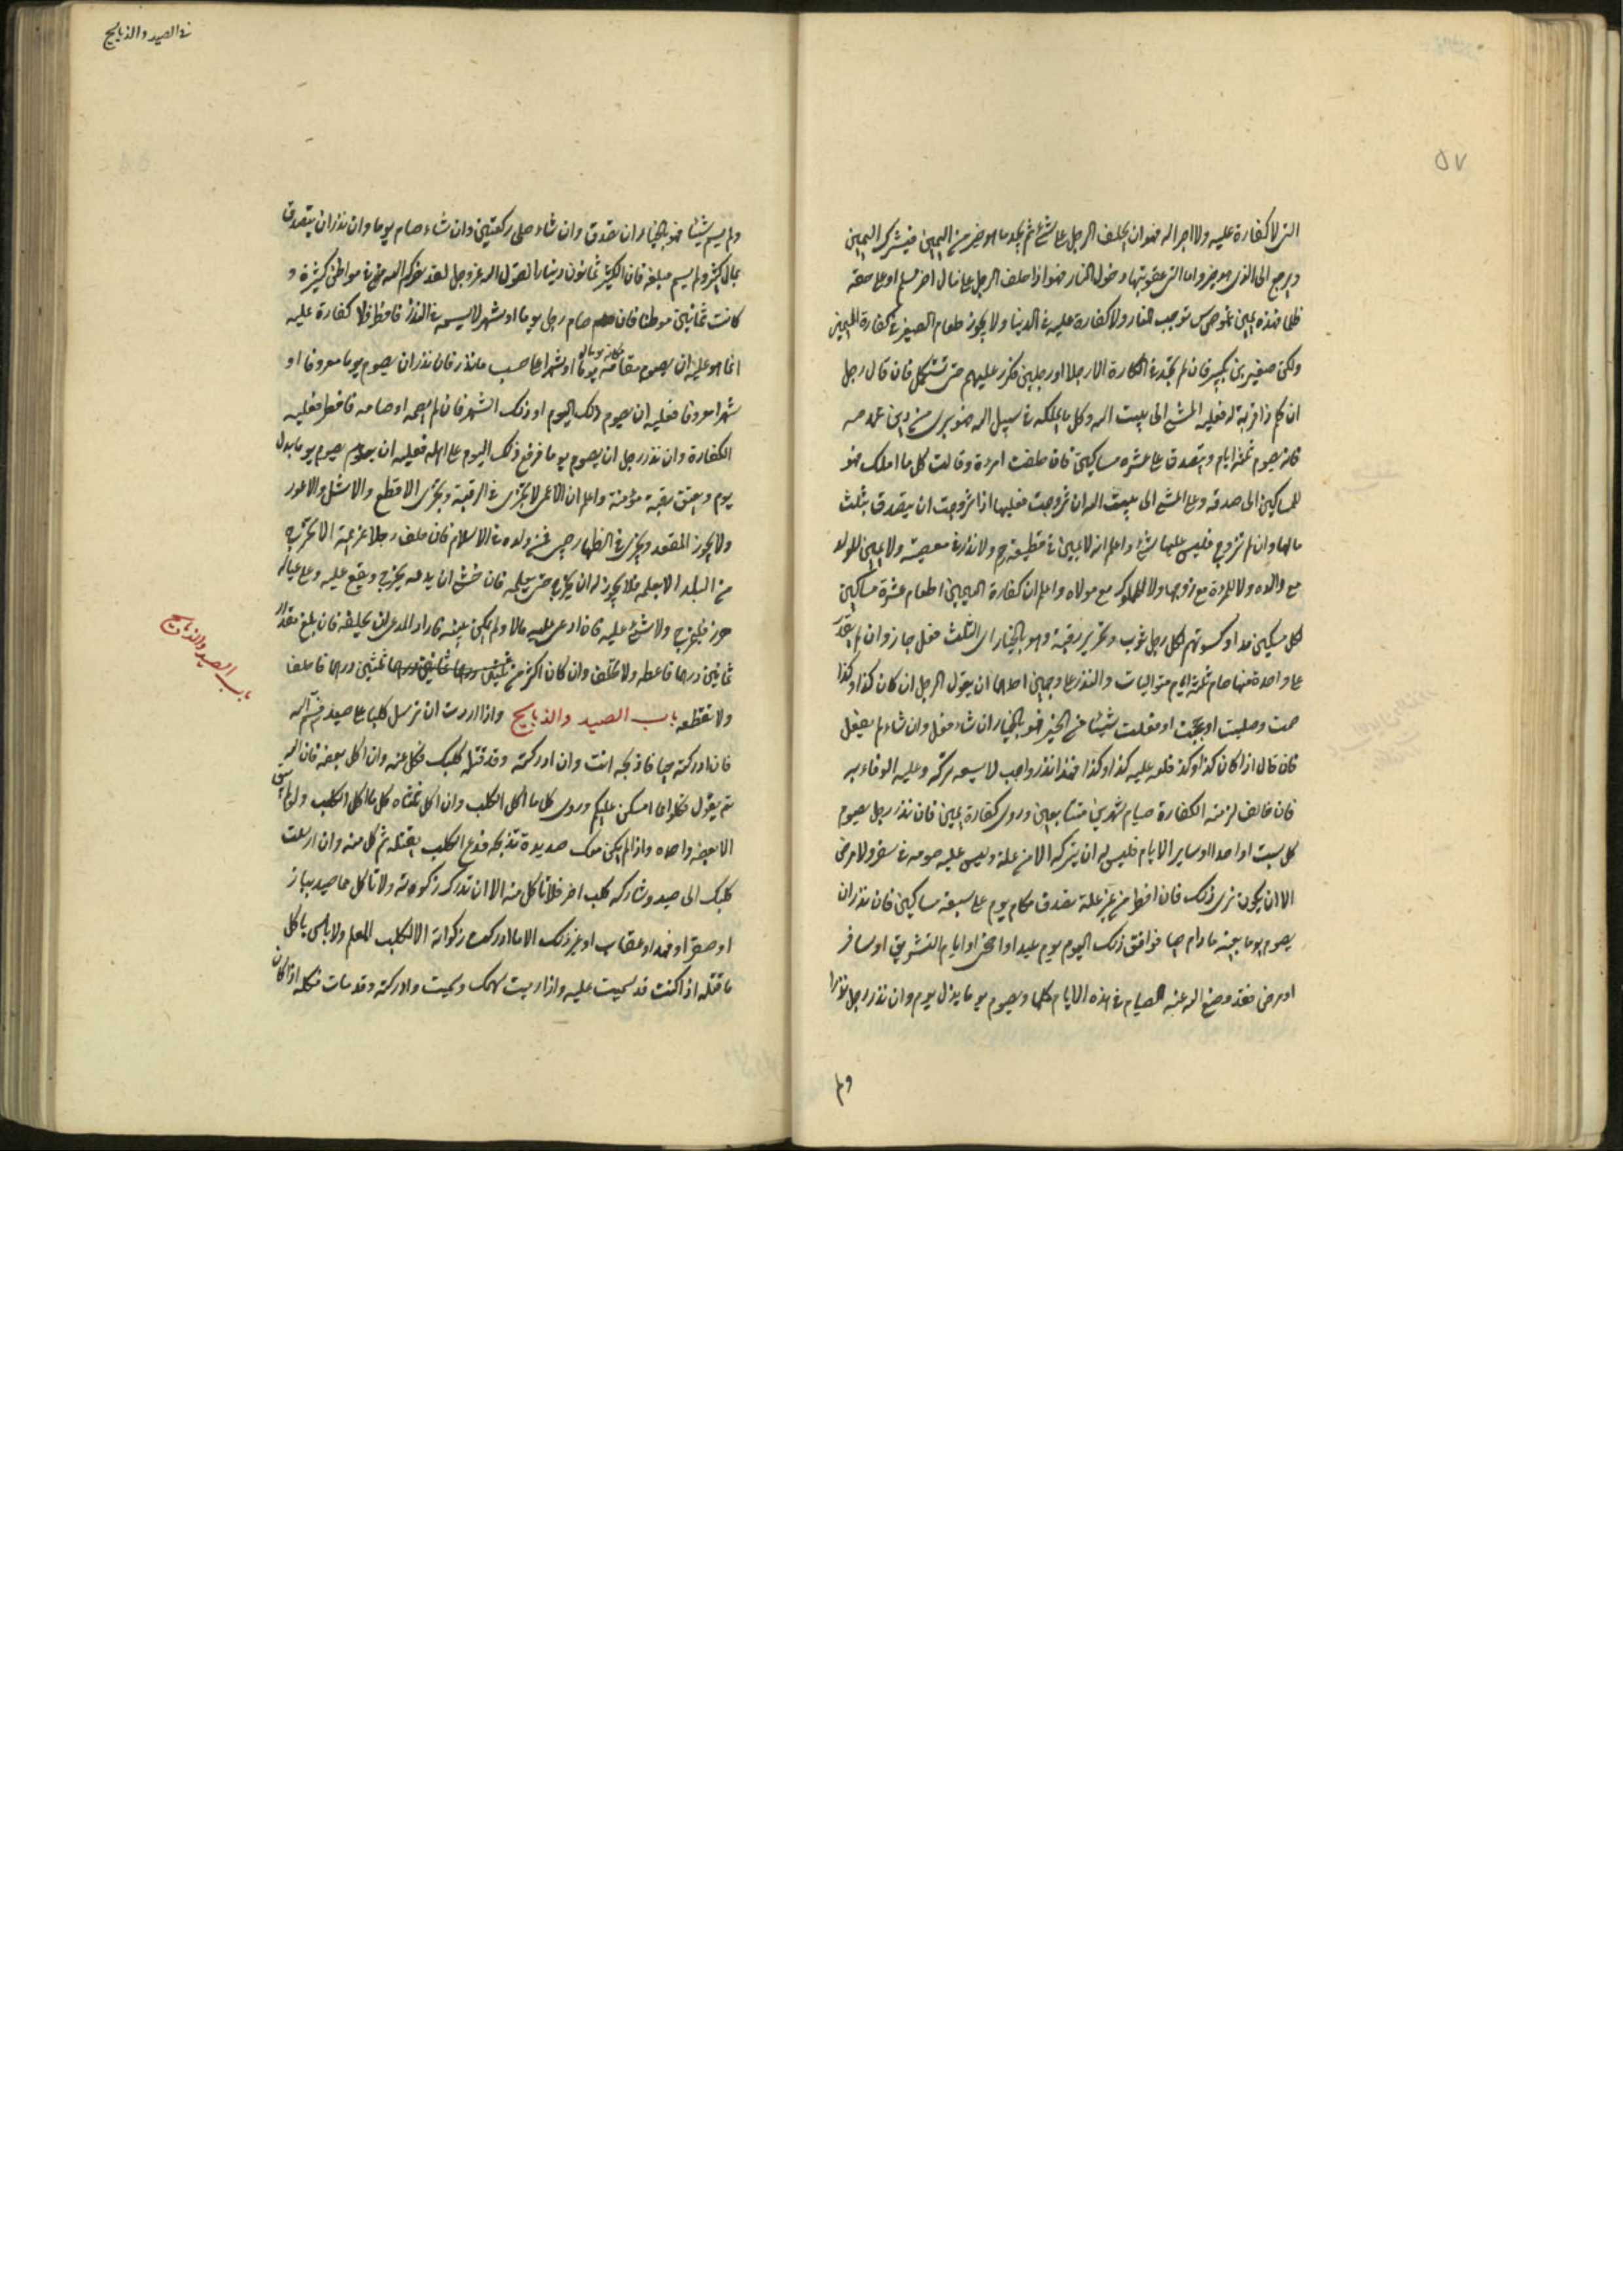 ٥٧
التي لا كفارة عليه ولا اجر له فهو ان يحلف الرجل على شئ ثم يجد ما هو خير من اليمين فيترك اليمين
ويرجع الى الذي هو خير واما التي عقوبتها دخول النار فهو اذا حلف الرجل على مال امرء مسلم او على حقه
ظلما فهذه يمين غموس توجب النار ولا كفارة عليه في الدنيا ولا يجوز طعام الصغير في كفارة اليمين
ولكن صغيرين بكبير فان لم تجد في الكفارة الا رجلا او رجلين فكرر عليهم حتى تستكمل فان قال رجل
ان كلم ذا قرابة له فعليه المشي الى بيت الله وكل ما يملكه في سبيل الله فهو بري من دين محمد
فانه يصوم ثلثة ايام ويتصدق على عشره مساكين فان حلفت امرءة وقالت كل ما املك فهو
للمساكين الى صدقه وعلي المشي الى بيت الله ان تزوجت فعليها اذا تزوجت ان يتصدق بثلث
مالها وان لم تزوج فليس عليها شئ واعلم انه لا يمين في قطيعة رحم ولا نذر في معصية ولا يمين للولد
مع والده ولا للمرءة مع زوجها ولا للمملوك مع مولاه واعلم ان كفارة اليمين اطعام عشرة مساكين
لكل مسكين مد او كسوتهم لكل رجل ثوب وتحرير رقبة وهو بالخيار اي الثلث فعل جاز وان لم يقدر
على واحدة منها صام ثلثة ايام متواليات والنذر على وجهين احدهما ان يقول الرجل ان كان كذا وكذا
صمت وصليت او حججت او فعلت شيئا من الخير فهو بالخيار ان شاء فعل وان شاء لم يفعل
فان قال اذا كان كذا وكذا فلله عليه كذا وكذا فهذا نذر واجب لا يسعه تركه وعليه الوفاء به
فان خالف لزمته الكفارة صيام شهرين متتابعين وروي كفارة يمين فان نذر رجل يصوم
كل سبت او احد او ساير الايام فليس له ان يتركه الا من علة وليس عليه صومه في سفر ولا مرض
الا ان يكون نوى ذلك فان افطر من غير علة تصدق مكام يوم على سبعة مساكين فان نذر ان
يصوم يوما بعينه ما دام حيا فوافق ذلك اليوم يوم عيد او اضحى او ايام التشريق او سافر
او مرض فقد وضع الله عنه الصيام في هذه الايام كلها ويصوم يوما بدل يوم وان نذر رجل نذرا
ولم
في الصيد والذبايح
ولم يسم شيئا فهو بالخيار ان تصدق وان شاء صلى ركعتين وان شاء صام يوما وان نذر ان يتصدق
بمال كثير ولم يسم مبلغه فان الكثير ثمانون دينارا لقول الله عز وجل لقد نصركم الله في مواطن كثيرة و
كانت ثمانين موطنا فان صام رجل يوما او شهرا لا يسميه في النذر فافطر فلا كفارة عليه
انما هو عليه ان يصوم مقامه يوما او شهرا على حسب ما نذر فان نذر ان يصوم يوما معروفا او
مكانه يوما
شهرا معروفا فعليه ان يصوم ذلك اليوم او ذلك الشهر فان لم يصمه او صامه فافطر فعليه
الكفارة وان نذر رجل ان يصوم يوما فوقع ذلك اليوم على اهله فعليه ان يصوم يوما بدل
يوم ويعتق رقبة مؤمنة واعلم ان الاعمى لا يجزي في الرقبة ويجزي الاقطع والاشل والاعور
ولا يجوز المقعد ويجزي في الظهار صبي ممن ولد في الاسلام فان حلف رجلا غريمه الا يخرج
من البلد الا بعلمه فلا يجوز له ان يخرج حتى يعلمه فان خشي ان يدعه يخرج ويقع عليه وعلى عياله
ضرر فليخرج ولا شئ عليه فان ادعى عليه مالا ولم يكن بينه فاراد المدعي ان يحلفه فان بلغ مقدار
ثلثين درهما فاعطه ولا تحلف وان كان اكثر من ثلثين درهما فاحلف
ولا تعطه باب الصيد والذبايح واذا اردت ان ترسل كلبا على صيد فسم الله
باب الصيد والذبايح
فان ادركته حيا فاذبحه انت وان ادركته وقد قتله كلبك فكل منه وان اكل بعضه فان الله
تع يقول فكلوا مما امسكن عليكم وروي كل ما اكل الكلب وان اكل ثلثاه كل ما اكل الكلب ولو لم يبق
الا بضعة واحده واذا لم يكن معك حديدة تذبحه فدع الكلب يقتله ثم كل منه وان ارسلت
كلبك الى صيد وشاركه كلب اخر فلا تاكل منه الا ان تدرك زكوته ولا تاكل مما صيد بباز
او صقر او فهد او عقاب او غير ذلك الا ما ادركت زكواته الا الكلب المعلم ولا باس باكل
ما قتله اذا كنت قد سميت عليه واذا رميت سهمك وسميت وادركته وقد مات فكله اذا كان